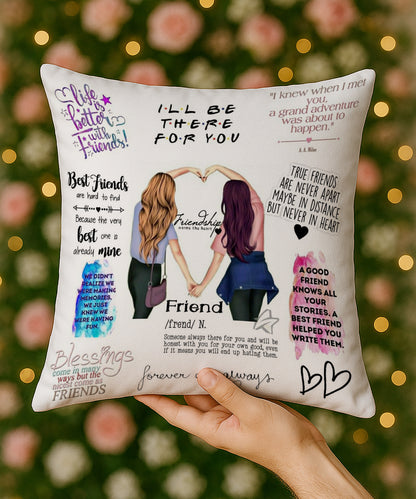 life is
better
with
Friends!
I.L.L BE
T.H.E.R.E
F.O.R YOU
"I knew when I met
you,
a grand adventure
was about to
happen."
A. A. Milne
Best Friends
are hard to find
Because the very
best one is
already mine
Friendship
TRUE FRIENDS
ARE NEVER APART
MAYBE IN DISTANCE
BUT NEVER IN HEART
WE DIDN'T
REALIZE WE
WERE MAKING
MEMORIES,
WE JUST
KNEW WE
WERE HAVING
FUN.
Friend
/frend/ N.
Someone always there for you and will be
honest with you for your own good, even
if it means you will end up hating them.
A GOOD
FRIEND
KNOWS ALL
YOUR
STORIES. A
BEST FRIEND
HELPED YOU
WRITE THEM.
Blessings
come in many
ways but the
nicest come as
FRIENDS
forever always